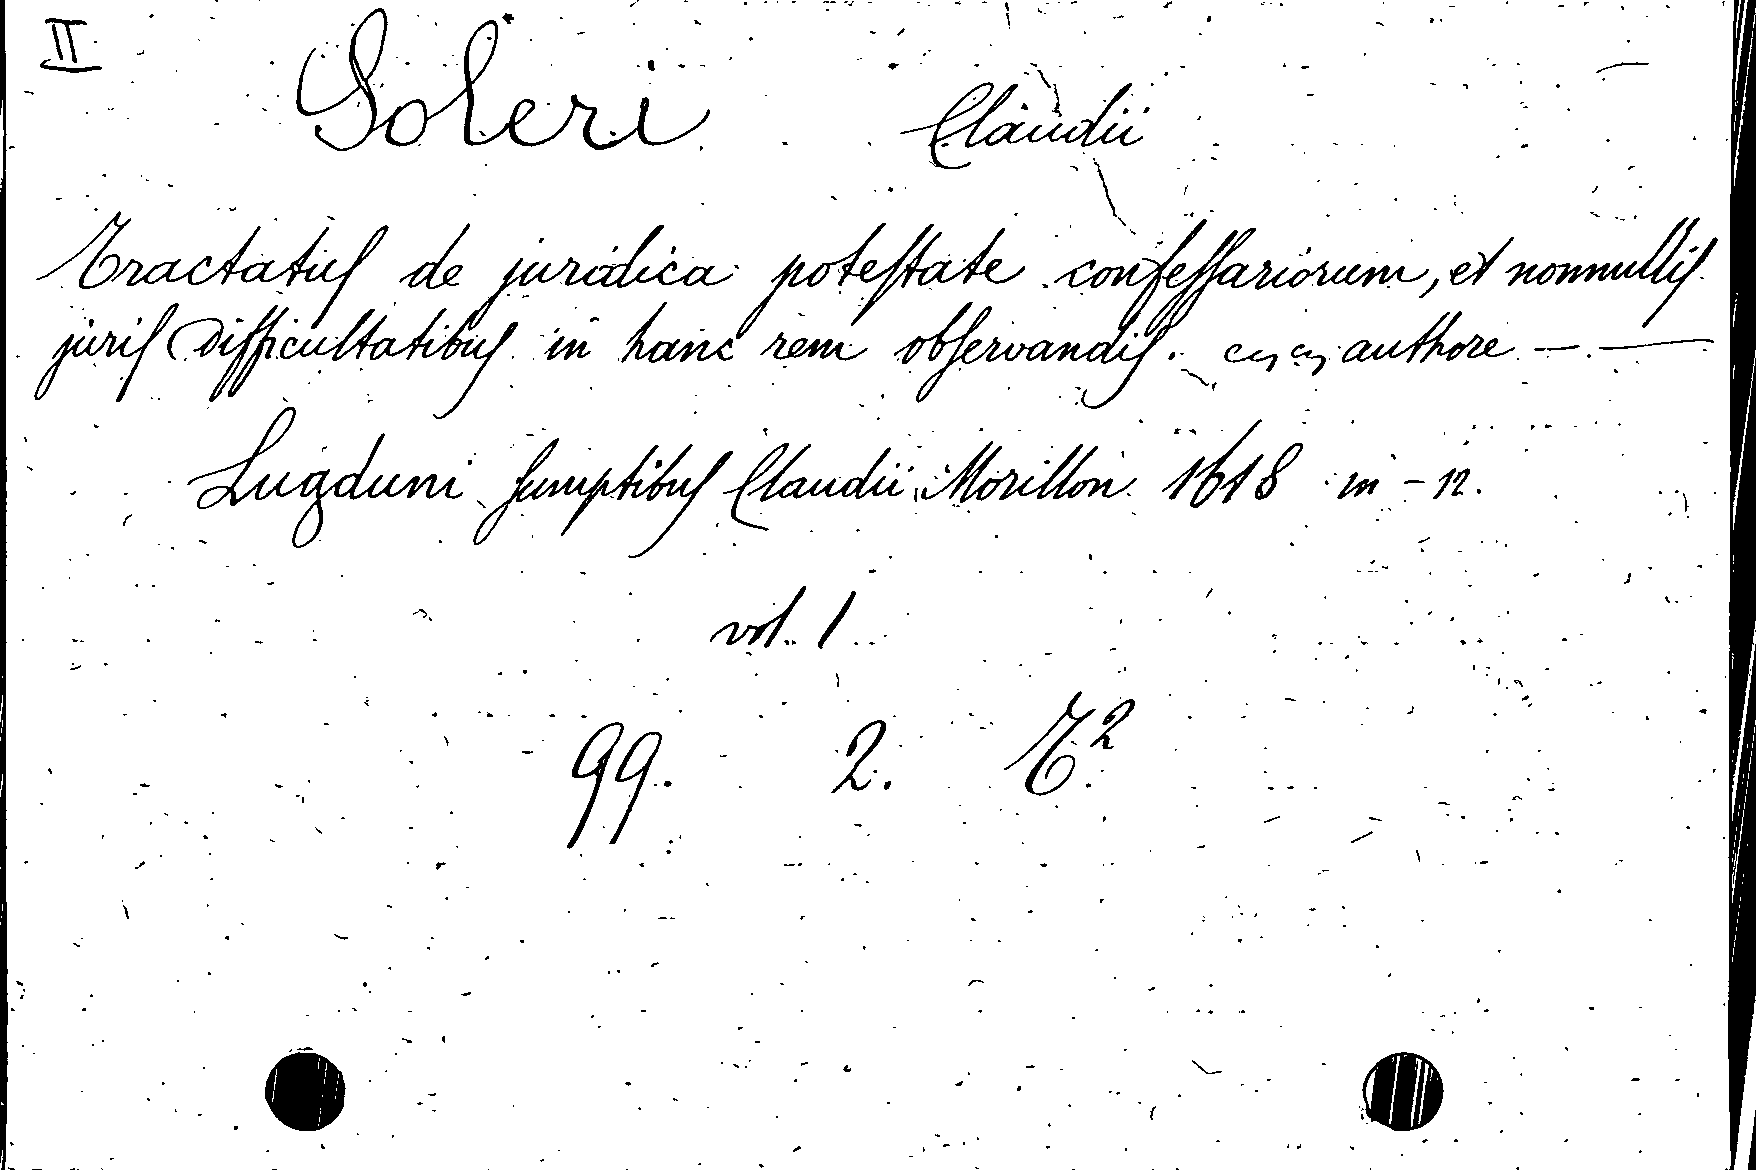 II
Soleri Claudii
Tractatuſ de juridica poteſtate confeſſariorum, et nonnulliſ
juriſ difficultatibuſ in hanc rem obſervandiſ. authore — —
Lugduni ſumptibuſ Claudii Morillon 1618 in - 12.
vol. 1
99. 2. T.²